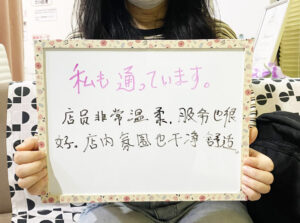 私も通っています。
店员非常温柔，服务也很
好。店内氛围也干净舒适。